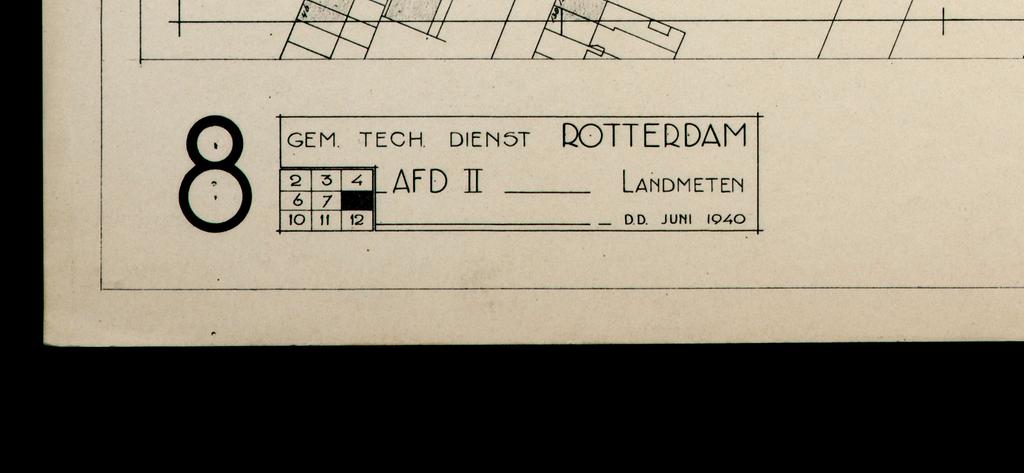 8
GEM. TECH. DIENST ROTTERDAM
2 3 4
6 7
10 11 12
AFD II LANDMETEN
D.D. JUNI 1940